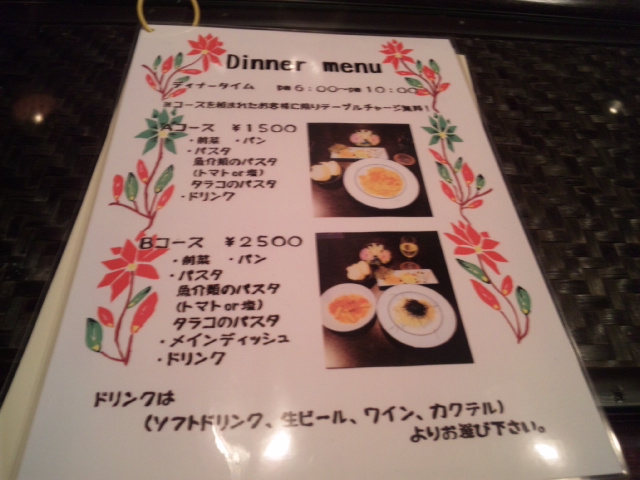 Dinner menu
ディナータイム PM 6:00〜PM 10:00
※コースを頼まれたお客様に限りテーブルチャージ無料!
Aコース ¥1500
・前菜 ・パン
・パスタ
魚介類のパスタ
(トマトor塩)
タラコのパスタ
・ドリンク
Bコース ¥2500
・前菜 ・パン
・パスタ
魚介類のパスタ
(トマトor塩)
タラコのパスタ
・メインディッシュ
・ドリンク
ドリンクは
(ソフトドリンク、生ビール、ワイン、カクテル)
よりお選び下さい。